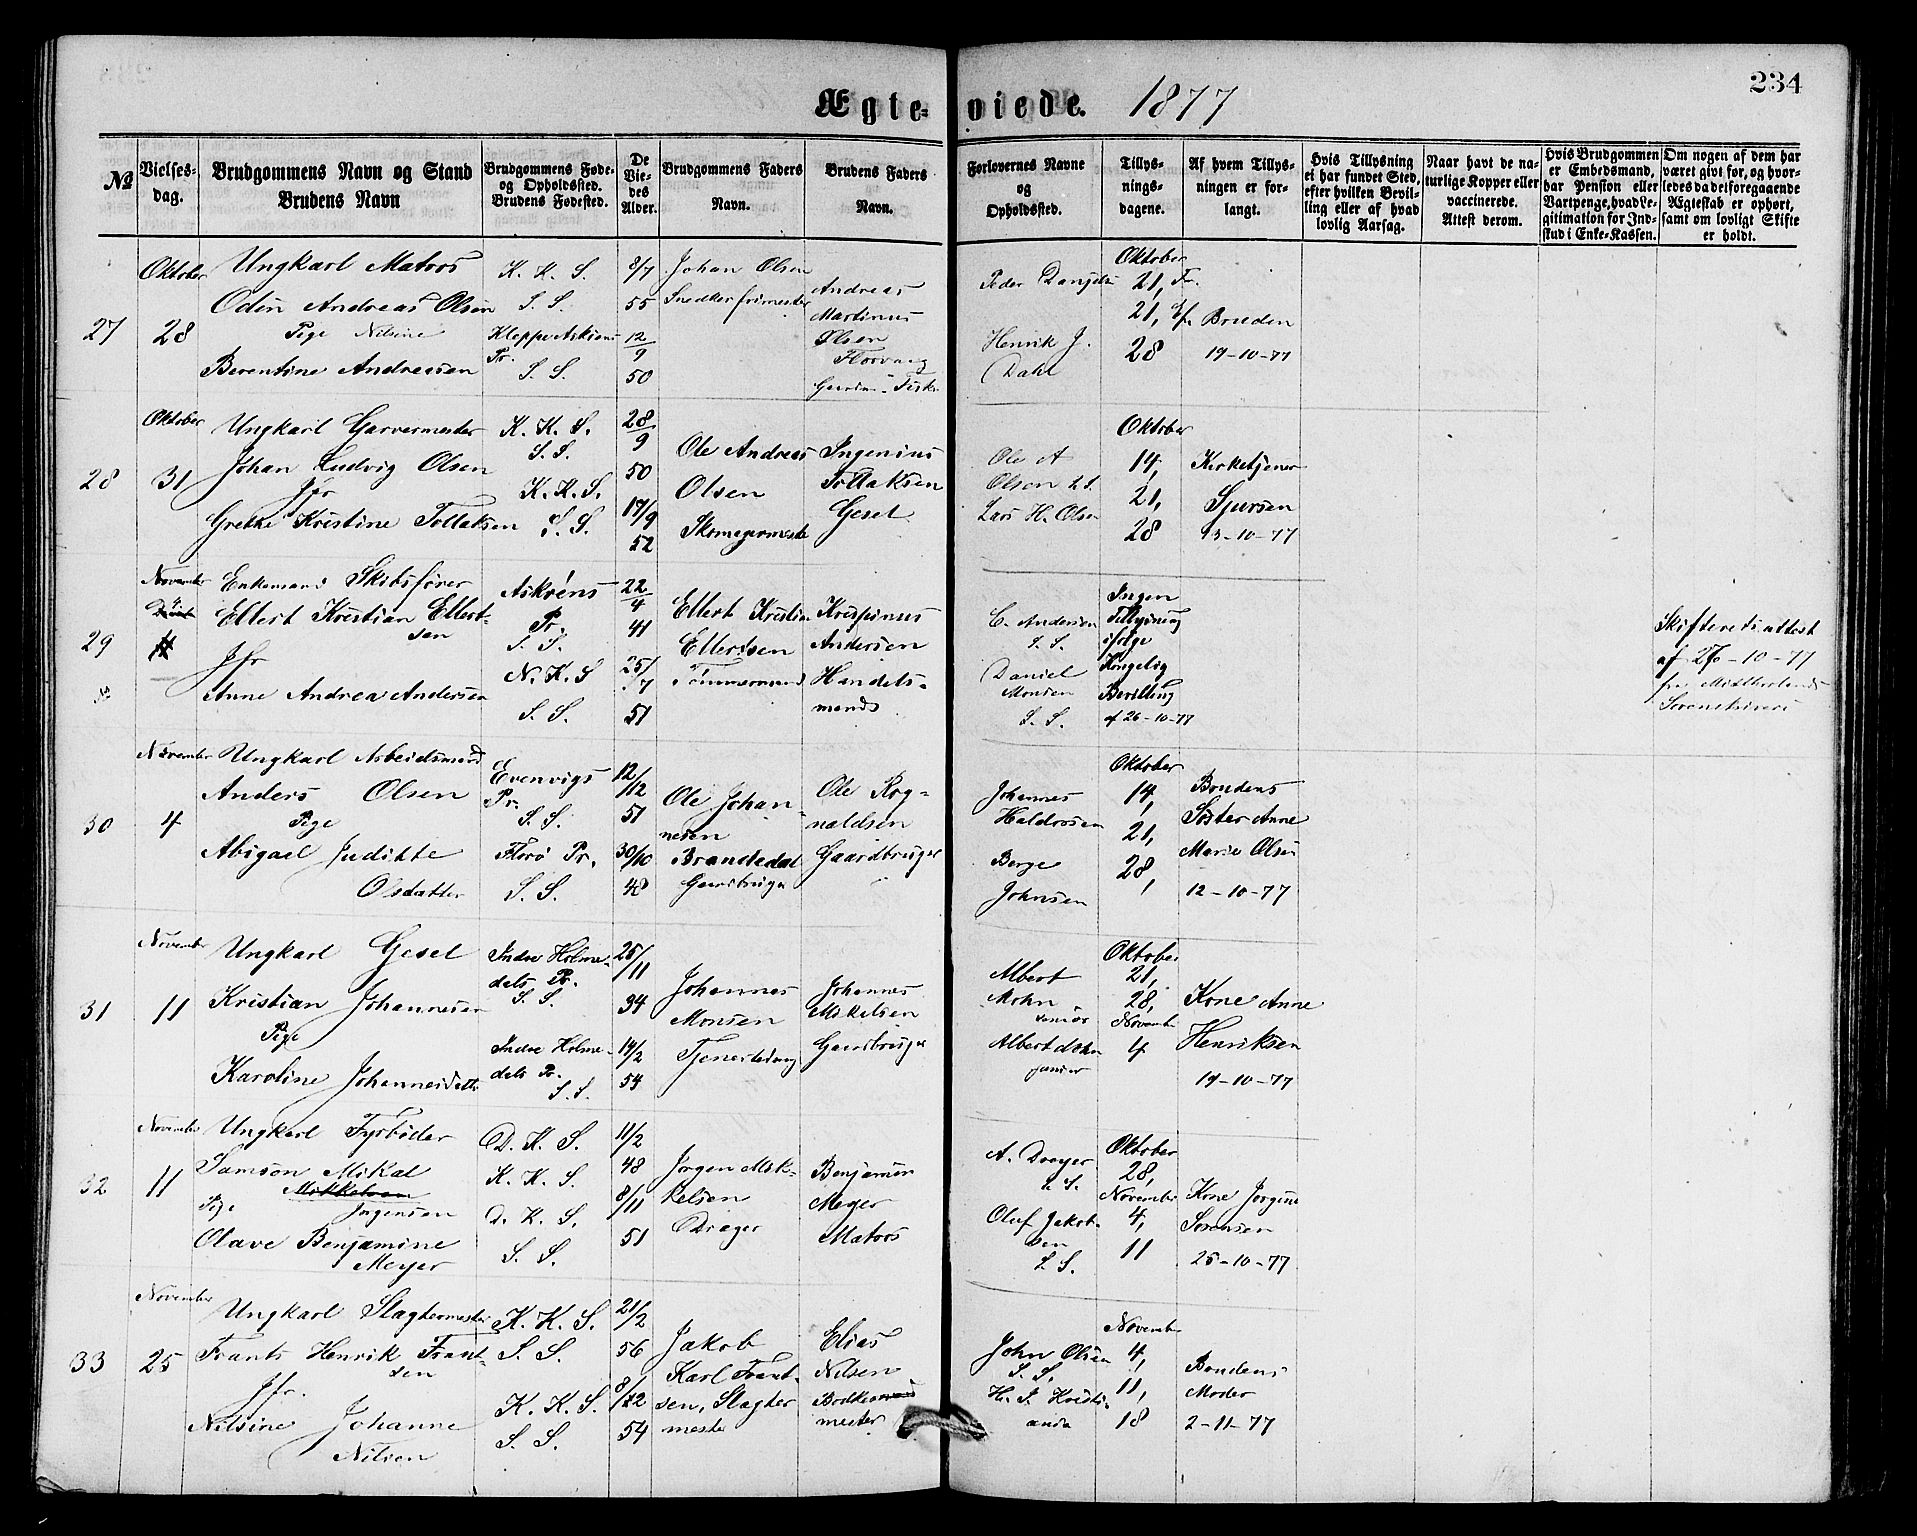 234
Ægteviede. 1877
№
Vielses-
dag.
Brudgommens Navn og Stand
Brudens Navn
Brudgommens Føde-
og Opholdssted.
Brudens Fødested.
De
Vie-
des
Alder.
Brudgommens Faders
Navn.
Brudens Faders
Navn.
Forlovernes Navne
og
Opholdssted.
Tillys-
nings-
dagene.
Af hvem Tillys-
ningen er for-
langt.
Hvis Tillysning
ei har fundet Sted,
efter hvilken Bevil-
ling eller af hvad
lovlig Aarsag.
Naar havt de na-
turlige Kopper eller
vaccinerede.
Attest derom.
Hvis Brudgommen
er Embedsmand,
har Pension eller
Vartpenge, hvad Le-
gitimation for Ind-
skud i Enke-Kassen.
Om nogen af dem har
været givt før, og hvor-
ledes da det foregaaende
Ægteskab er ophørt,
samt om lovligt Skifte
er holdt.
27
Oktober
28
Ungkarl Matros
Odin Andreas Olsen
Pige Nilsine
Berentine Andreasen
K. K. S.
S. S.
Kleppe Askøens
Pr.
S. S.
8/7
55
12/9
50
Johan Olsen
Snedker
Andreas
Martinus
Olsen
Florvaag
Peder
Henrik J.
Dahl
Oktober
21,
21,
28
Bruden
19-10-77
28
Oktober
31
Ungkarl Garvermester
Johan Ludvig Olsen
Jfr
Grethe Kristine Tollaksen
K. K. S.
S. S.
K. K. S.
S. S.
28/9
50
17/9
52
Ole Andreas
Olsen
Skomagermester
Ingenius
Tollaksen
Gesel
Ole A
Olsen S. S.
Lars H. Olsen
Oktober
14,
21,
28
Kirketjener
Sjursen
13-10-77
29
November
Enkemand Skibsfører
Ellert Kristian Ellert-
sen
Jfr
Anne Andrea Andersen
Askøens
Pr.
S. S.
N. K. S
S. S.
22/4
41
25/7
51
Ellert Kristian
Ellertsen
Tømmermand
Krispinus
Andersen
Handels-
mand
C. Andersen
S. S.
Daniel
Monsen
S. S.
Ingen
Tillysning
ifølge
Kongelig
Bevilling
af 26-10-77
Skifteretsattest
af 27-10-77
fra Midthorlands
Sorenskriveri
30
November
4
Ungkarl Arbeidsmand
Anders Olsen
Pige
Abigael Juditte
Olsdatter
Evenvigs
Pr.
S. S.
Florø Pr.
S. S.
12/12
51
30/10
48
Ole Johan-
nesen
Brandsdal
Gaardbruger
Ole Rog-
naldsen
Gaardbruger
Johannes
Haldorsen
Berge
Johnsen
Oktober
14,
21,
28,
Brudens
Søster Anne
Marie Olsen
12-10-77
31
November
11
Ungkarl Gesel
Kristian Johannesen
Pige
Karoline Johannesdatter
Indre Holme-
dals Pr.
S. S.
Indre Holme-
dals Pr.
S. S.
25/11
34
14/2
54
Johannes
Monsen
Johannes
Mikelsen
Gaardbruger
Albert
Mohn
senior
Albert Mohn
junior
Oktober
21,
28,
November
4
Kone Anne
Henriksen
19-10-77
32
November
11
Ungkarl Fyrbøder
Samson Mikal
Mikkelsen
Jørgensen
Pige
Olave Benjamine
Meyer
D. K. S.
K. K. S.
D. K. S.
S. S.
11/2
48
8/11
51
Jørgen Mik-
kelsen
Drager
Benjamin
Meyer
Matros
A. Dreyer
S. S.
Oluf Jakob-
sen
S. S.
Oktober
28,
November
4,
11
Kone Jørgine
Sørensen
25-10-77
33
November
25
Ungkarl Slagtermester
Frants Henrik Frant-
sen
Jfr.
Nilsine Johanne
Nilsen
K. K. S.
S. S.
K. K. S.
S. S.
21/2
56
8/12
54
Jakob
Karl Frant-
sen, Slagter
mester
Elias
Nilsen
Bødker
mester
John Olsen
S. S.
H. J. Kristi-
ansen
November
4,
11,
18
Brudens
Moder
2-11-77